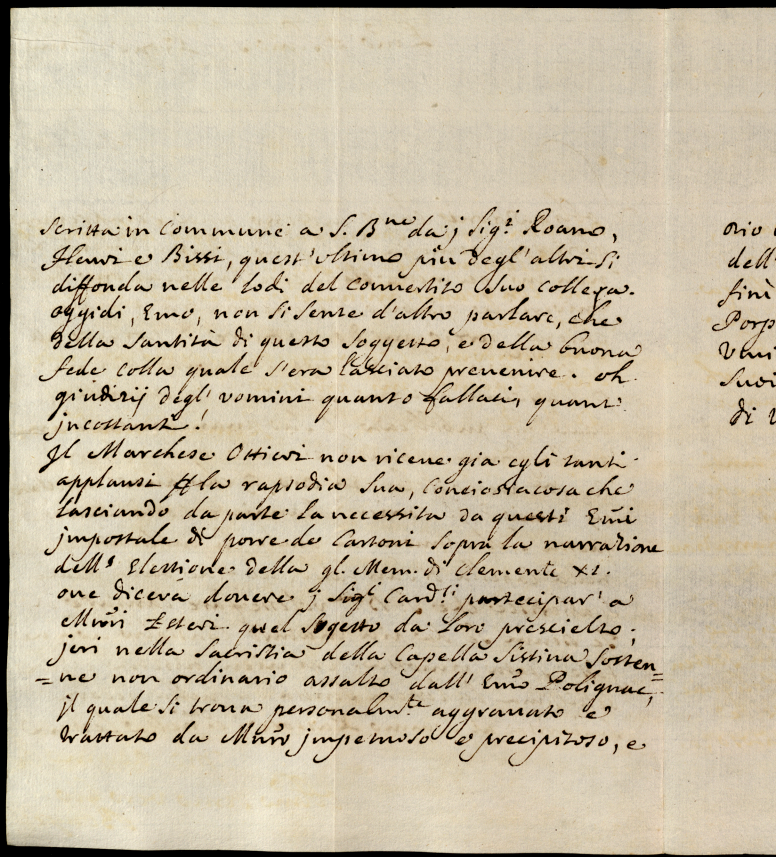 scritta in Commune a S. B.ne da j Sig.i Roano,
Fleuri e Bissi, quest'ultimo più degl'altri si
diffonda nelle lodi del convertito suo collega.
oggidi, Emo, non si sente d'altro parlare, che
della santità di questo soggetto, e della buona
fede colla quale s'era lasciato prevenire. oh
giudizij degl'uomini quanto fallaci, quant'
incostanti!
Jl Marchese Ottieri non riceve già egli tanti
applausi la rapsodia sua, conciossiacosa che
lasciando da parte la necessita da questi Emi
impostale di porre de Cartoni sopra la narrazione
dell' Elezzione della gl. Mem. di Clemente XI.
ove diceva dovere j Sig.i Card.li partecipar' a
Mini Esteri quel sogetto da loro prescielto;
jeri nella Sacristia della Capella Sistina sosten=
=ne non ordinario assalto dall' Emo Polignac,
jl quale si trova personalm.te aggravato e
trattato da Mino impetuoso e precipitoso, e
dell'
fini
Porp
di